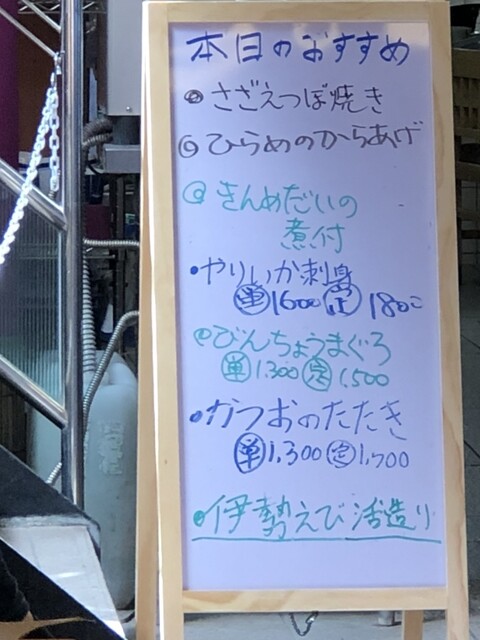 本日のおすすめ
• さざえつぼ焼き
◎ ひらめのからあげ
◎ きんめだいの
煮付
• やりいか刺身
単 1600 定 1800
• びんちょうまぐろ
単 1,300 定 1,500
• かつおのたたき
単 1,300 定 1,700
• 伊勢えび活造り